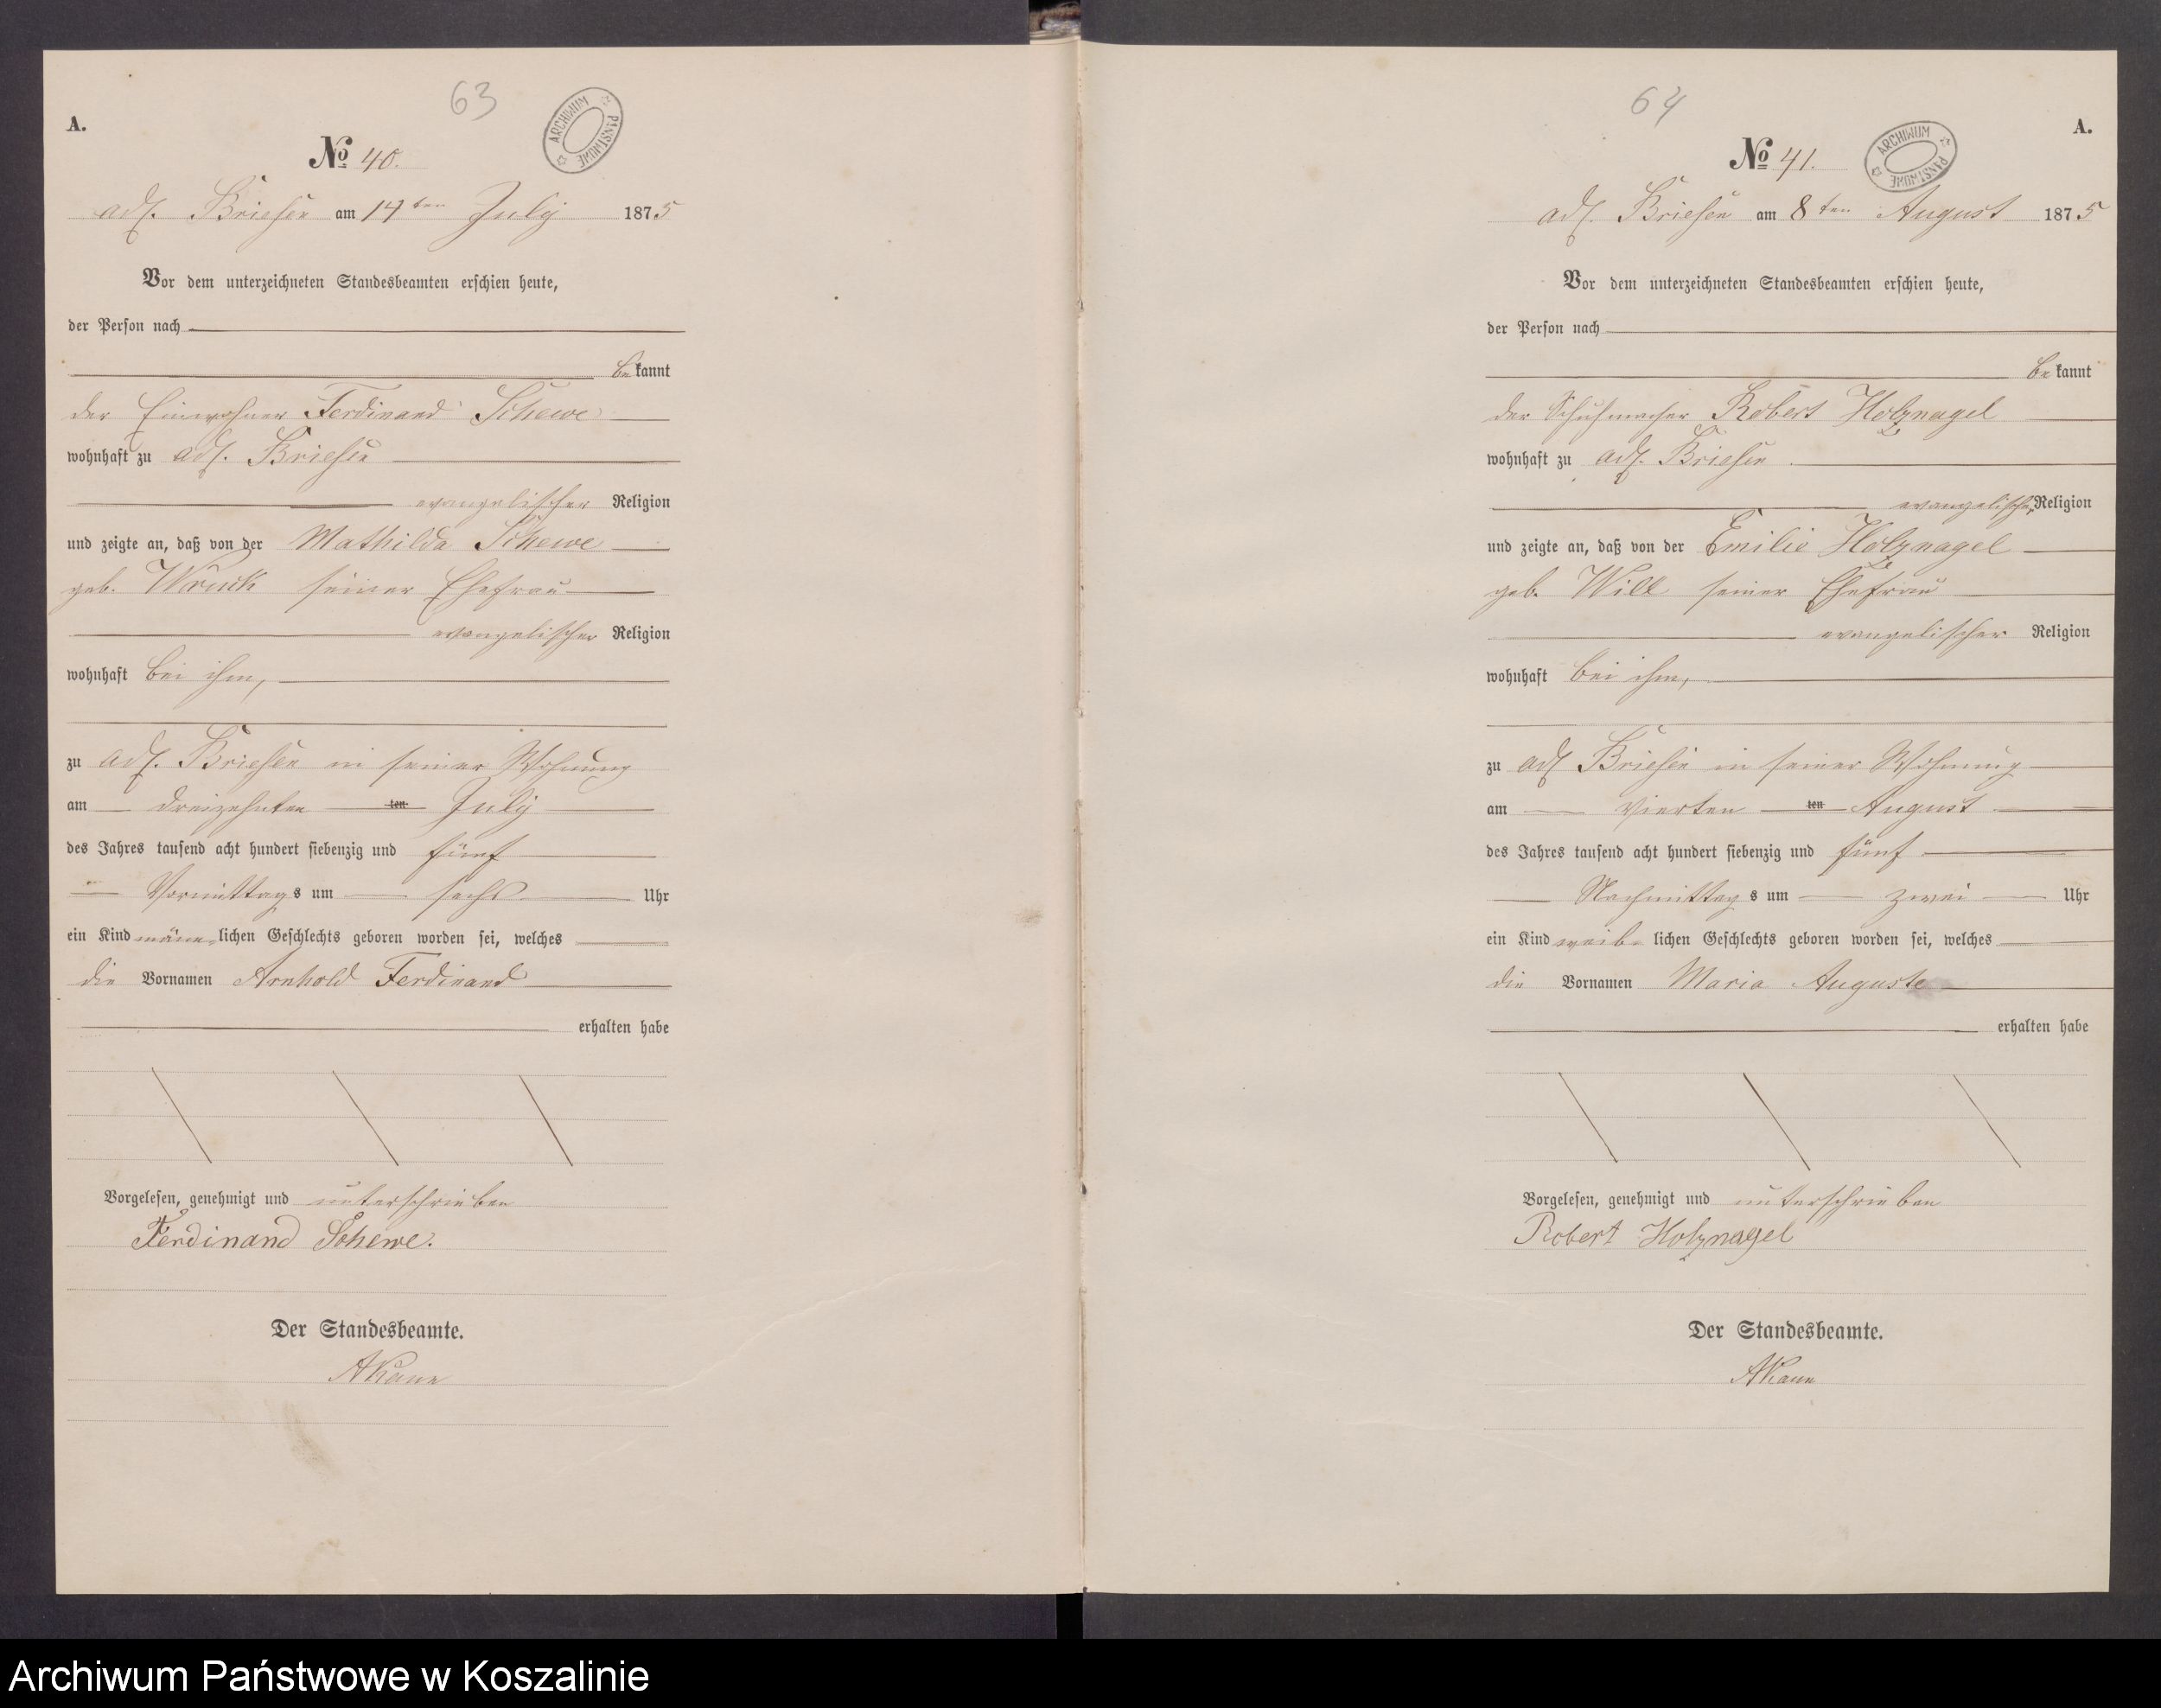 63
A.
ARCHIWUM PAŃSTWOWE
№ 40.
adl. Briesen am 14ten July 1875
Vor dem unterzeichneten Standesbeamten erschien heute,
der Person nach
bekannt
der Einwohner Ferdinand Schewe
wohnhaft zu adl. Briesen
evangelischer Religion
und zeigte an, daß von der Mathilda Schewe
geb. Wruck seiner Ehefrau
evangelischer Religion
wohnhaft bei ihm,
zu adl. Briesen in seiner Wohnung
am dreizehnten ten July
des Jahres tausend acht hundert siebenzig und fünf
Vormittags um sechs Uhr
ein Kind männlichen Geschlechts geboren worden sei, welches
die Vornamen Arnhold Ferdinand
erhalten habe
Vorgelesen, genehmigt und unterschrieben
Ferdinand Schewe.
Der Standesbeamte.
64
A.
ARCHIWUM PAŃSTWOWE
№ 41.
adl. Briesen am 8ten August 1875
Vor dem unterzeichneten Standesbeamten erschien heute,
der Person nach
bekannt
der Schuhmacher Robert Holznagel
wohnhaft zu adl. Briesen
evangelischer Religion
und zeigte an, daß von der Emilie Holznagel
geb. Will seiner Ehefrau
evangelischer Religion
wohnhaft bei ihm,
zu adl Briesen in seiner Wohnung
am vierten ten August
des Jahres tausend acht hundert siebenzig und fünf
Nachmittags um zwei Uhr
ein Kind weiblichen Geschlechts geboren worden sei, welches
die Vornamen Maria Auguste
erhalten habe
Vorgelesen, genehmigt und unterschrieben
Robert Holznagel
Der Standesbeamte.
Archiwum Państwowe w Koszalinie